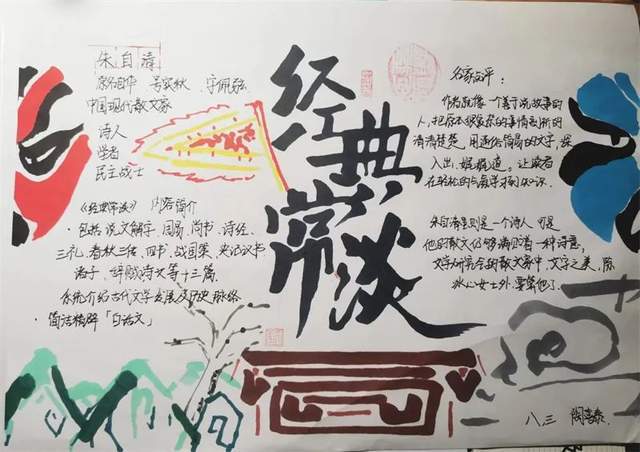 朱自清
原名自华 号实秋 字佩弦
中国现代散文家
诗人
学者
民主战士
《经典常谈》 内容简介
·包括说文解字、周易、尚书、诗经、
三礼、春秋三传、四书、战国策、史记汉书
诸子、辞赋诗文等十三篇
系统介绍古代文学发展及历史脉络
·简洁精辟「白话文」
经典
常谈
名家点评:
作者就像一个善于说故事的
人,把原本很繁杂的事情剖析的
清清楚楚,用通俗简易的文字,深
入出,娓娓道。让读者
在轻松的
朱自清虽则是一个诗人,可是
他的散文仍能够满贮着一种诗意,
文学研究会的散文家中,文字之美,除
冰心女士外,要算他了。
八三